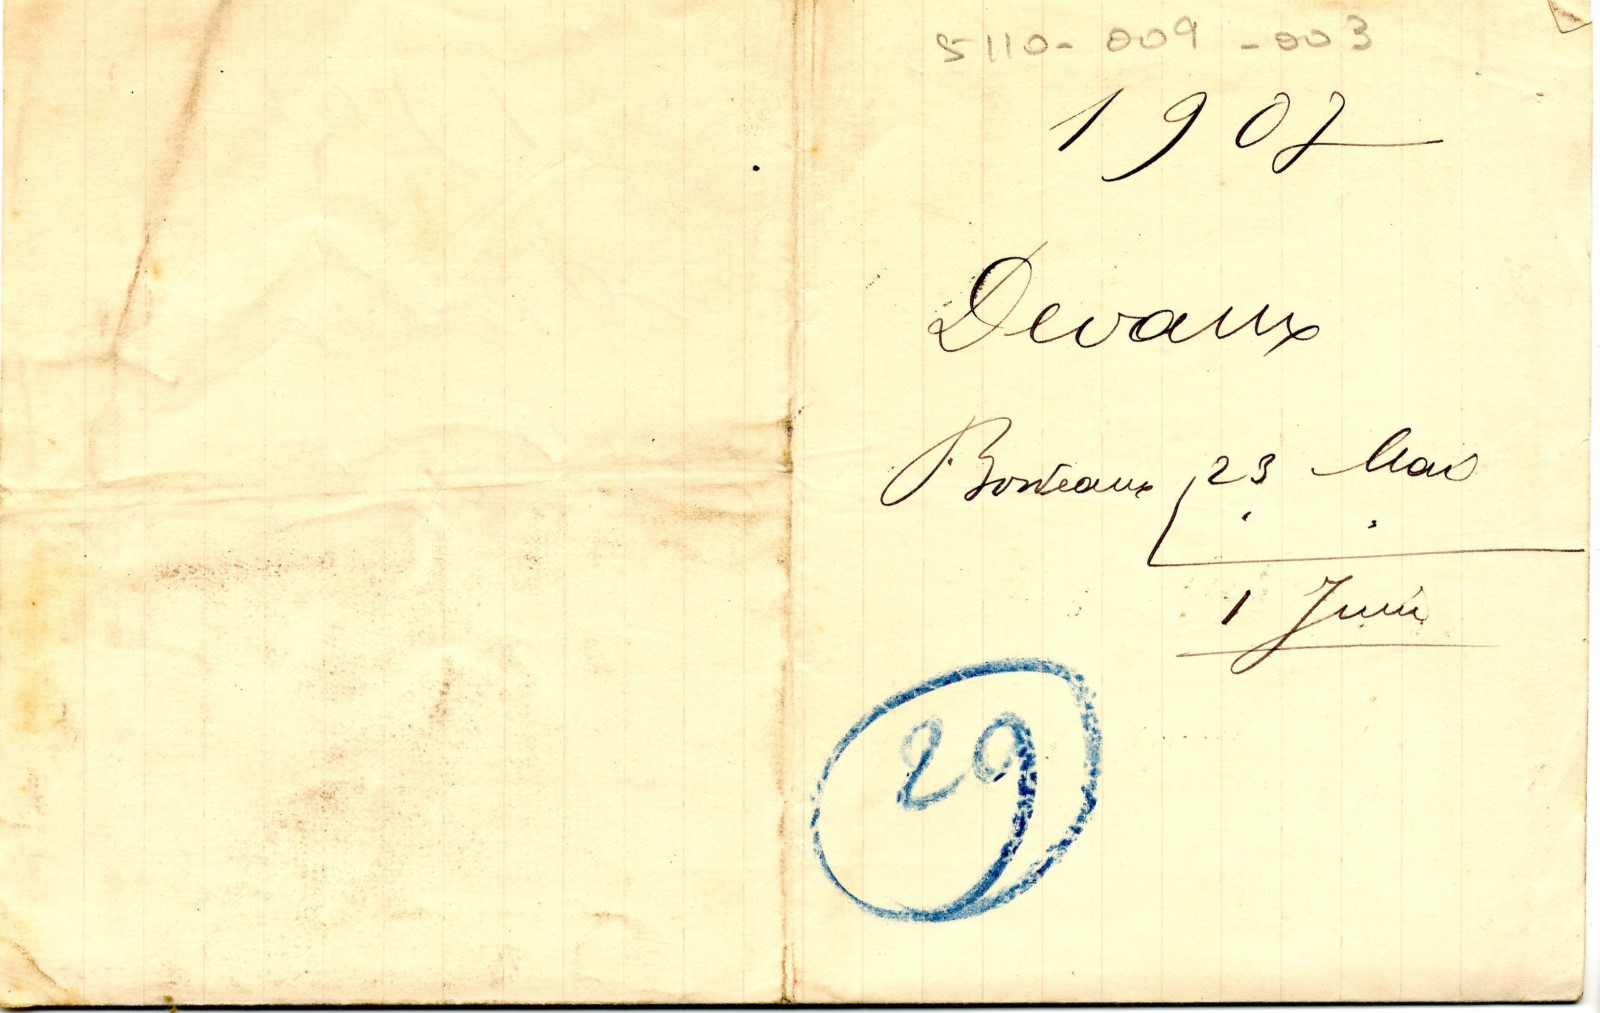 5110-009-003
1907
Devaux
Bordeaux 23 Mai
1 Juin
29